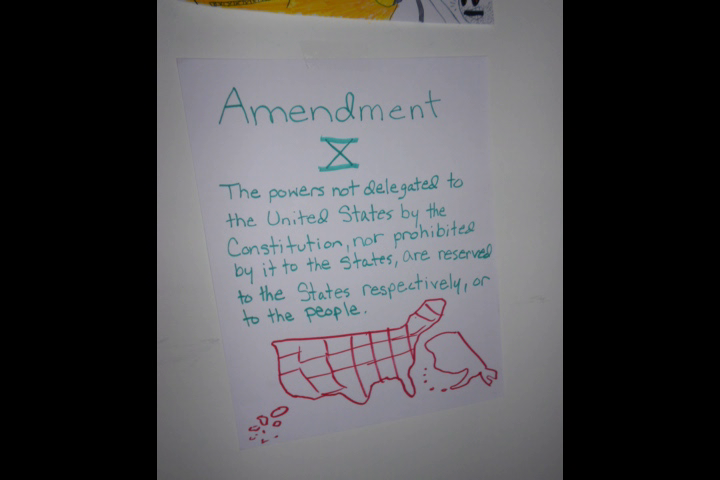 Amendment
X
The powers not delegated to
the United States by the
Constitution, nor prohibited
by it to the States, are reserved
to the States respectively, or
to the people.